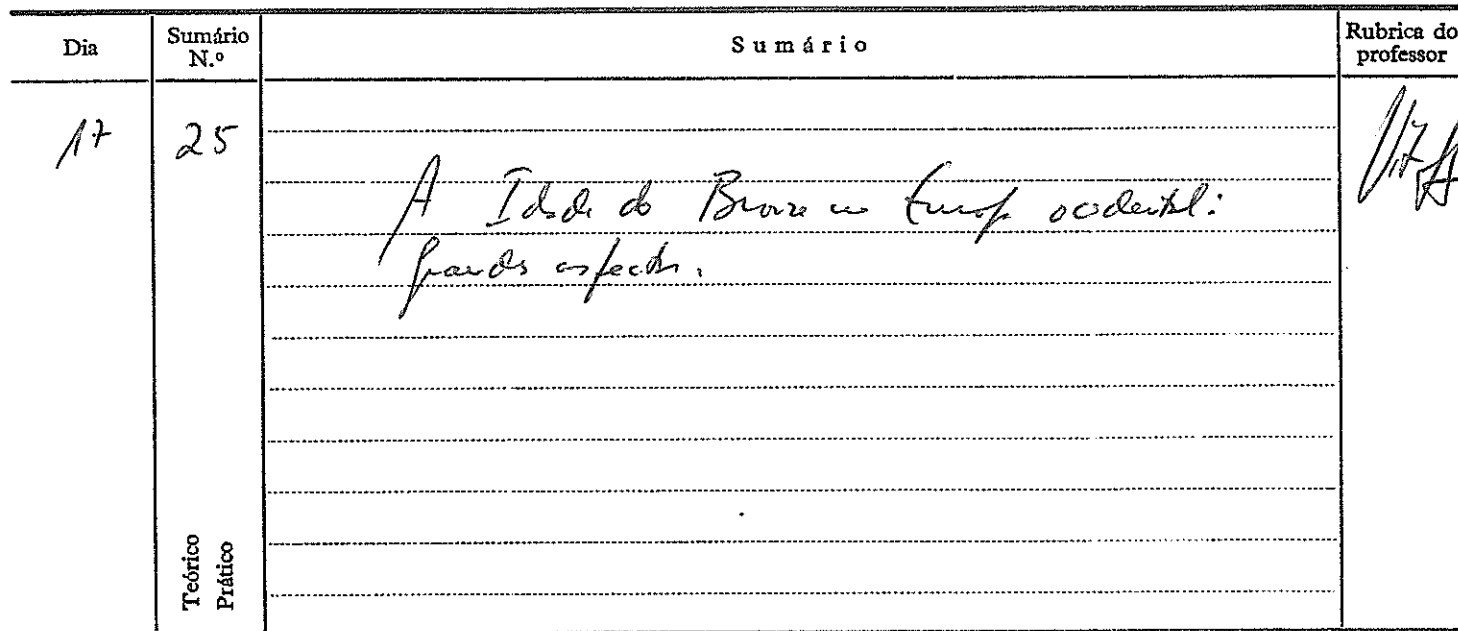 Dia
Sumário N.º
Sumário
Rubrica do professor
17
25
A Idade do Bronze na Europa ocidental:
grandes aspectos.
Teórico
Prático